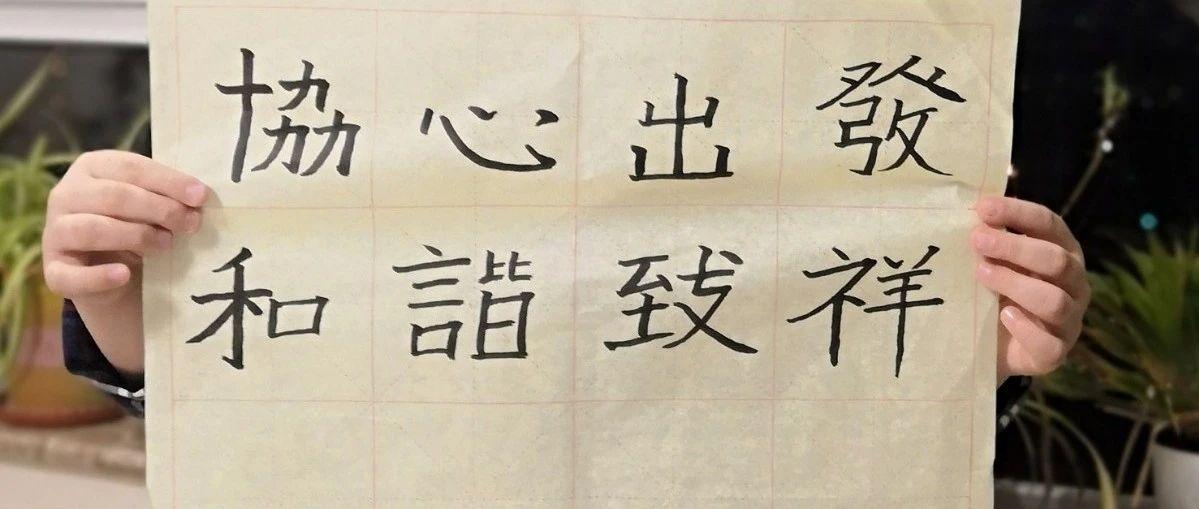 協心出發
和諧致祥